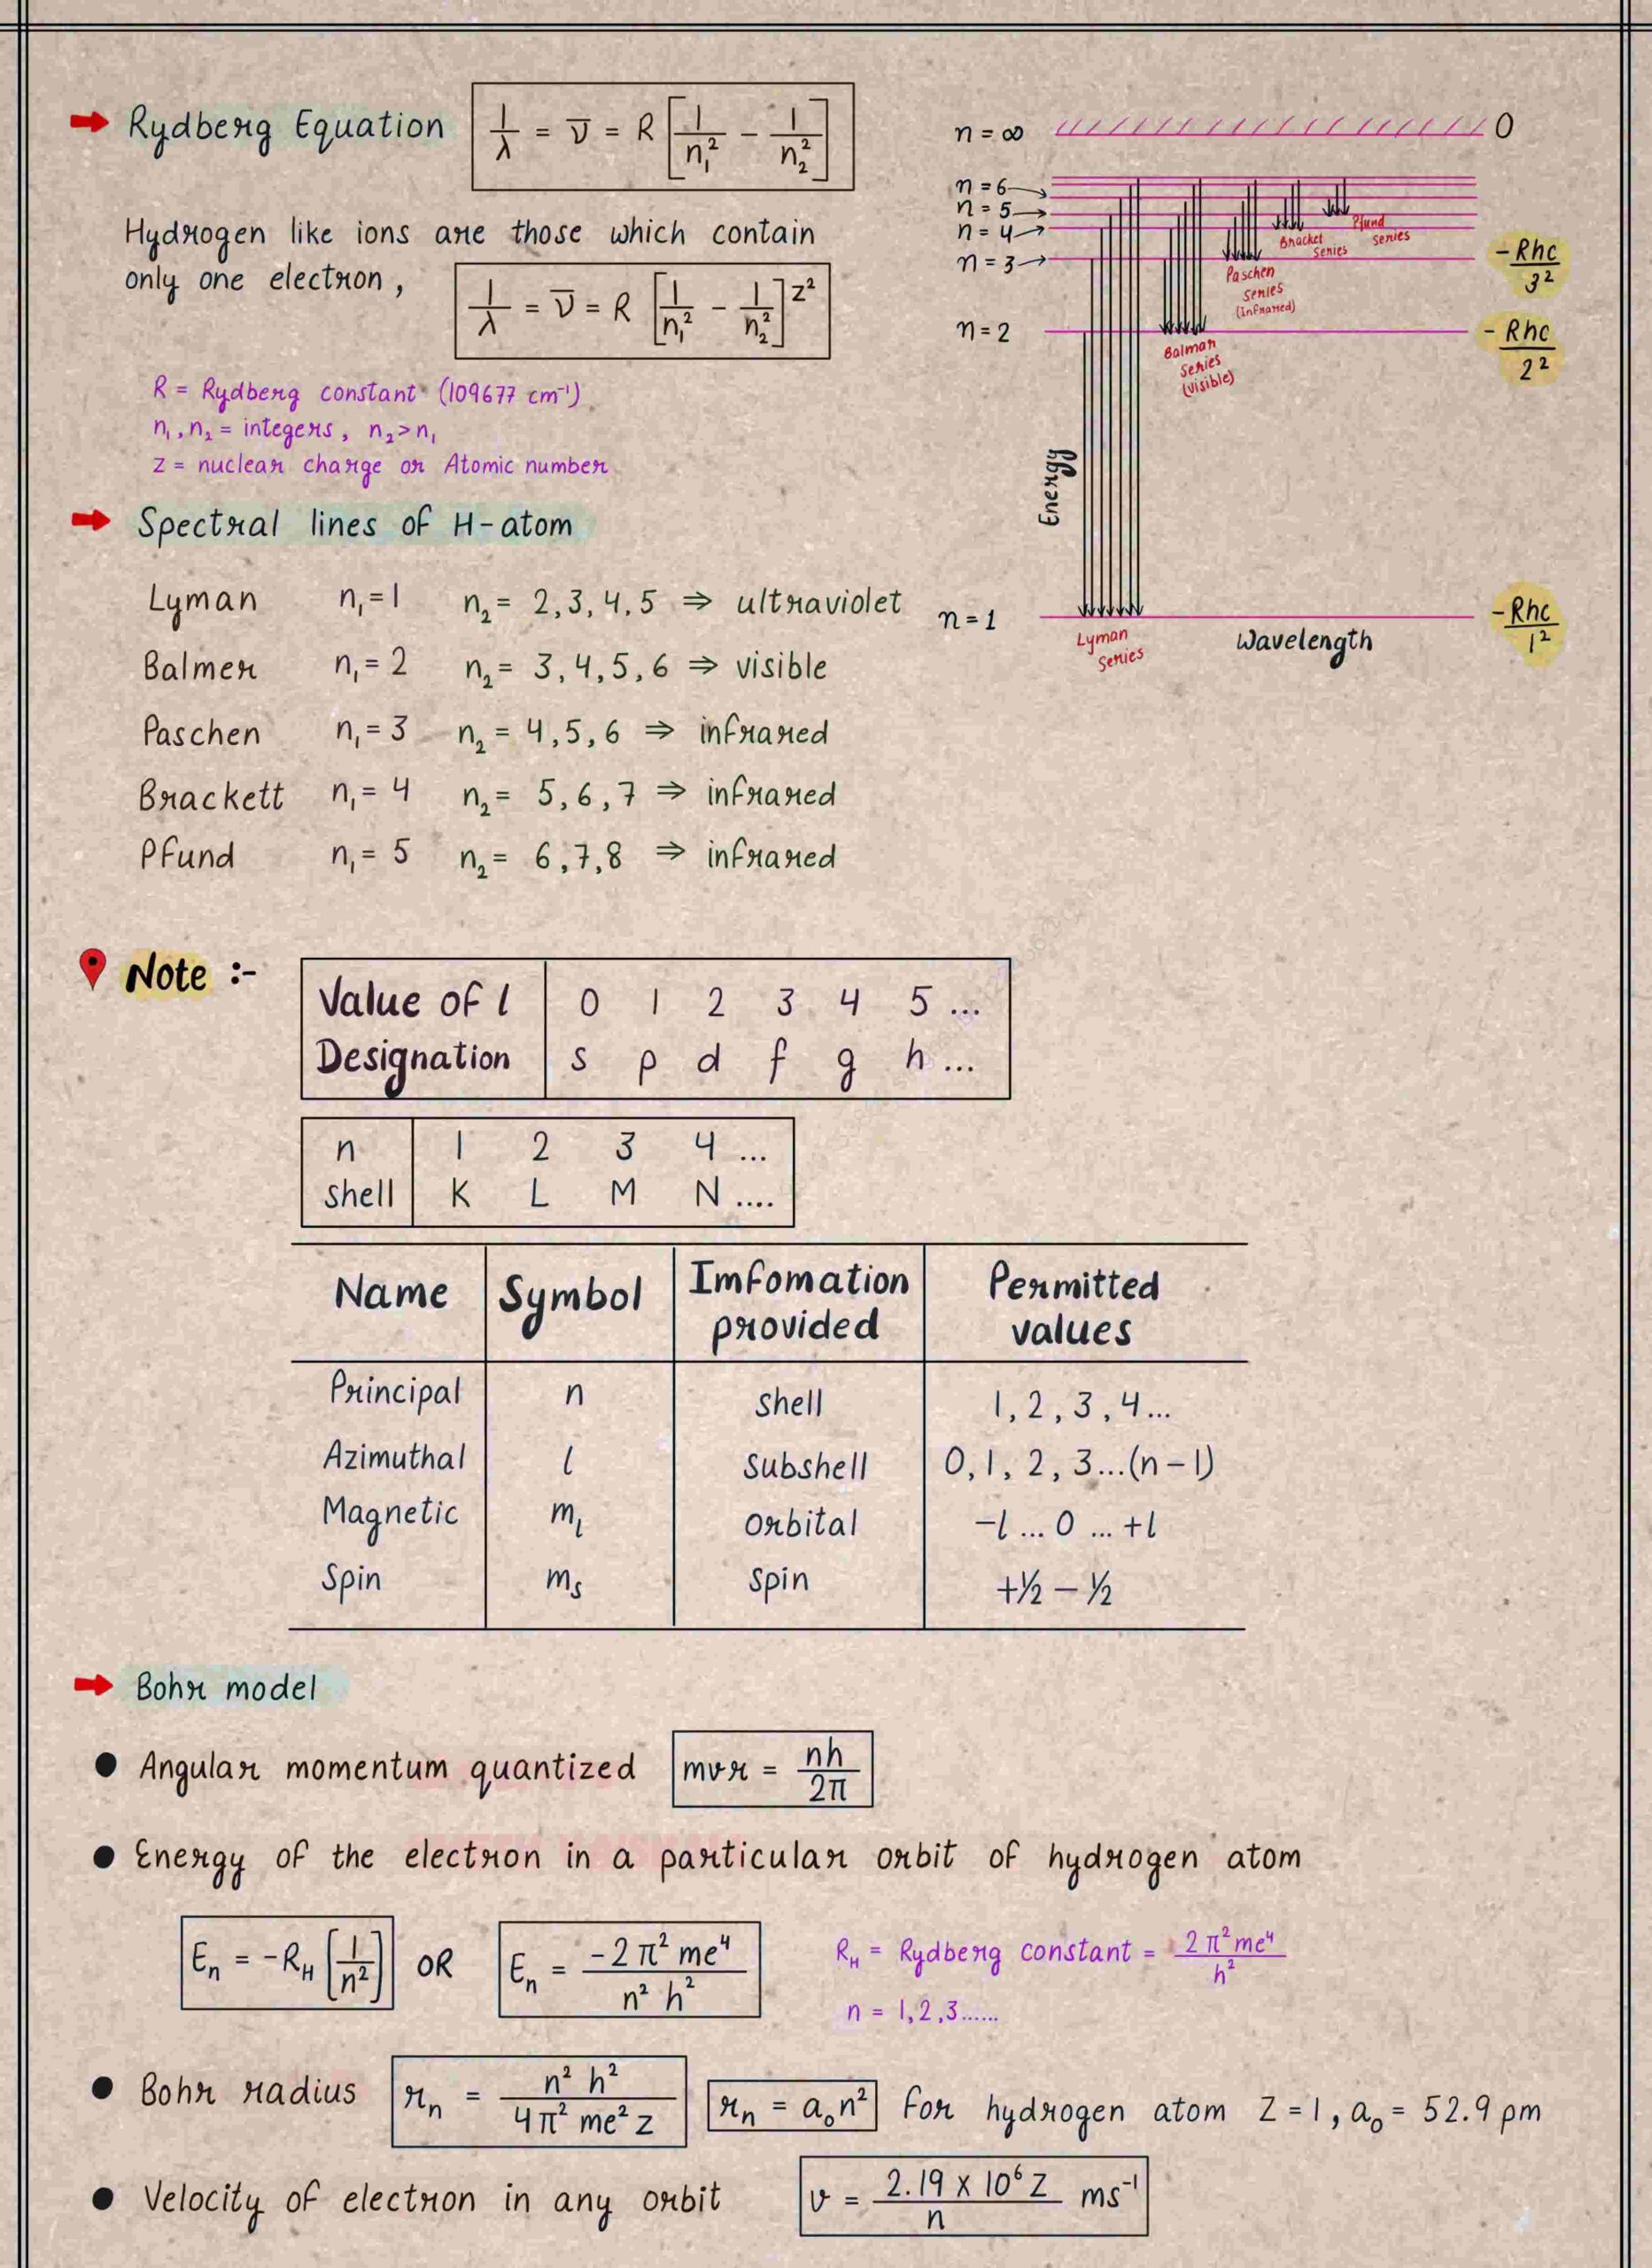 Rydberg Equation 1/λ = ν̄ = R [1/n₁² − 1/n₂²]
Hydrogen like ions are those which contain
only one electron, 1/λ = ν̄ = R [1/n₁² − 1/n₂²] z²
R = Rydberg constant (109677 cm⁻¹)
n₁, n₂ = integers, n₂>n₁
z = nuclear charge or Atomic number
n = ∞ 0
n = 6
n = 5
n = 4
n = 3 -Rhc/3²
n = 2 -Rhc/2²
n = 1 -Rhc/1²
Pfund
series
Bracket
Series
Paschen
Series
(Infrared)
Balmar
Series
(visible)
Energy
Lyman
Series
Wavelength
Spectral lines of H-atom
Lyman n₁=1 n₂= 2,3,4,5 ⇒ ultraviolet
Balmer n₁= 2 n₂= 3,4,5,6 ⇒ visible
Paschen n₁= 3 n₂ = 4,5,6 ⇒ infrared
Brackett n₁= 4 n₂= 5,6,7 ⇒ infrared
Pfund n₁= 5 n₂= 6,7,8 ⇒ infrared
Note :-
Value of l 0 1 2 3 4 5 ...
Designation s p d f g h ...
n 1 2 3 4 ...
shell K L M N ....
Name Symbol Imfomation provided Permitted values
Principal n shell 1, 2, 3, 4...
Azimuthal l Subshell 0, 1, 2, 3...(n-1)
Magnetic mₗ orbital -l ... 0 ... +l
Spin mₛ spin +½ − ½
Bohr model
● Angular momentum quantized mvr = nh/2π
● Energy of the electron in a particular orbit of hydrogen atom
Eₙ = -R_H [1/n²] OR Eₙ = -2π²me⁴/n²h² R_H = Rydberg constant = 2π²me⁴/h²
n = 1,2,3......
● Bohr radius rₙ = n²h²/4π²me²z rₙ = a₀n² For hydrogen atom Z = 1, a₀ = 52.9 pm
● Velocity of electron in any orbit v = 2.19 x 10⁶ Z/n ms⁻¹